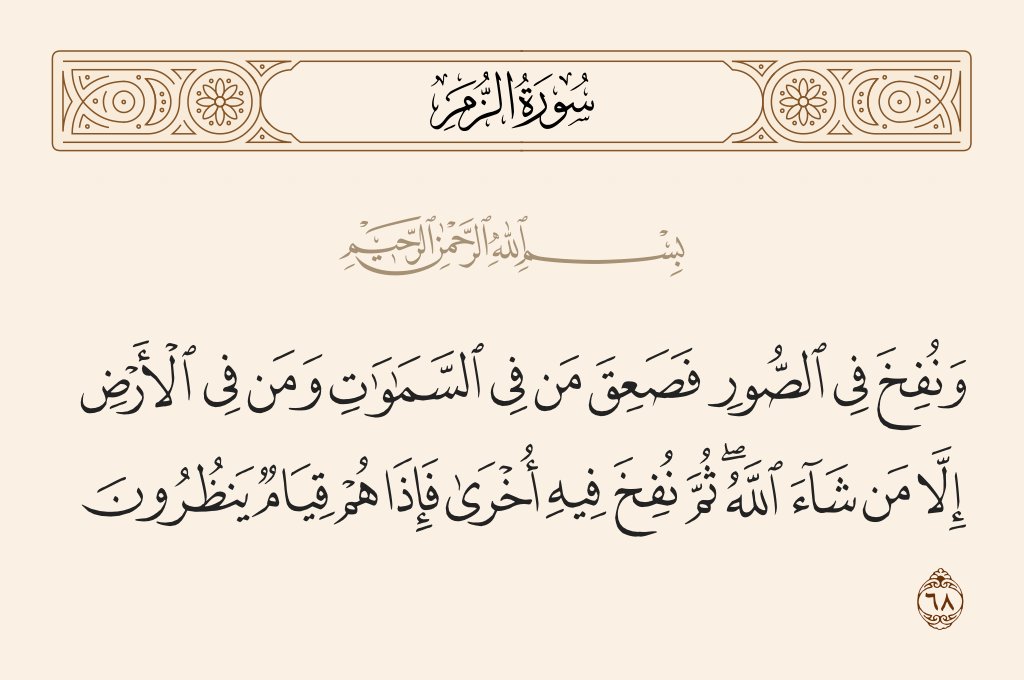 سُورَةُ الزُّمَرِ
بِسْمِ ٱللَّهِ ٱلرَّحْمَٰنِ ٱلرَّحِيمِ
وَنُفِخَ فِى ٱلصُّورِ فَصَعِقَ مَن فِى ٱلسَّمَٰوَٰتِ وَمَن فِى ٱلْأَرْضِ
إِلَّا مَن شَآءَ ٱللَّهُ ۖ ثُمَّ نُفِخَ فِيهِ أُخْرَىٰ فَإِذَا هُمْ قِيَامٌ يَنظُرُونَ
٦٨